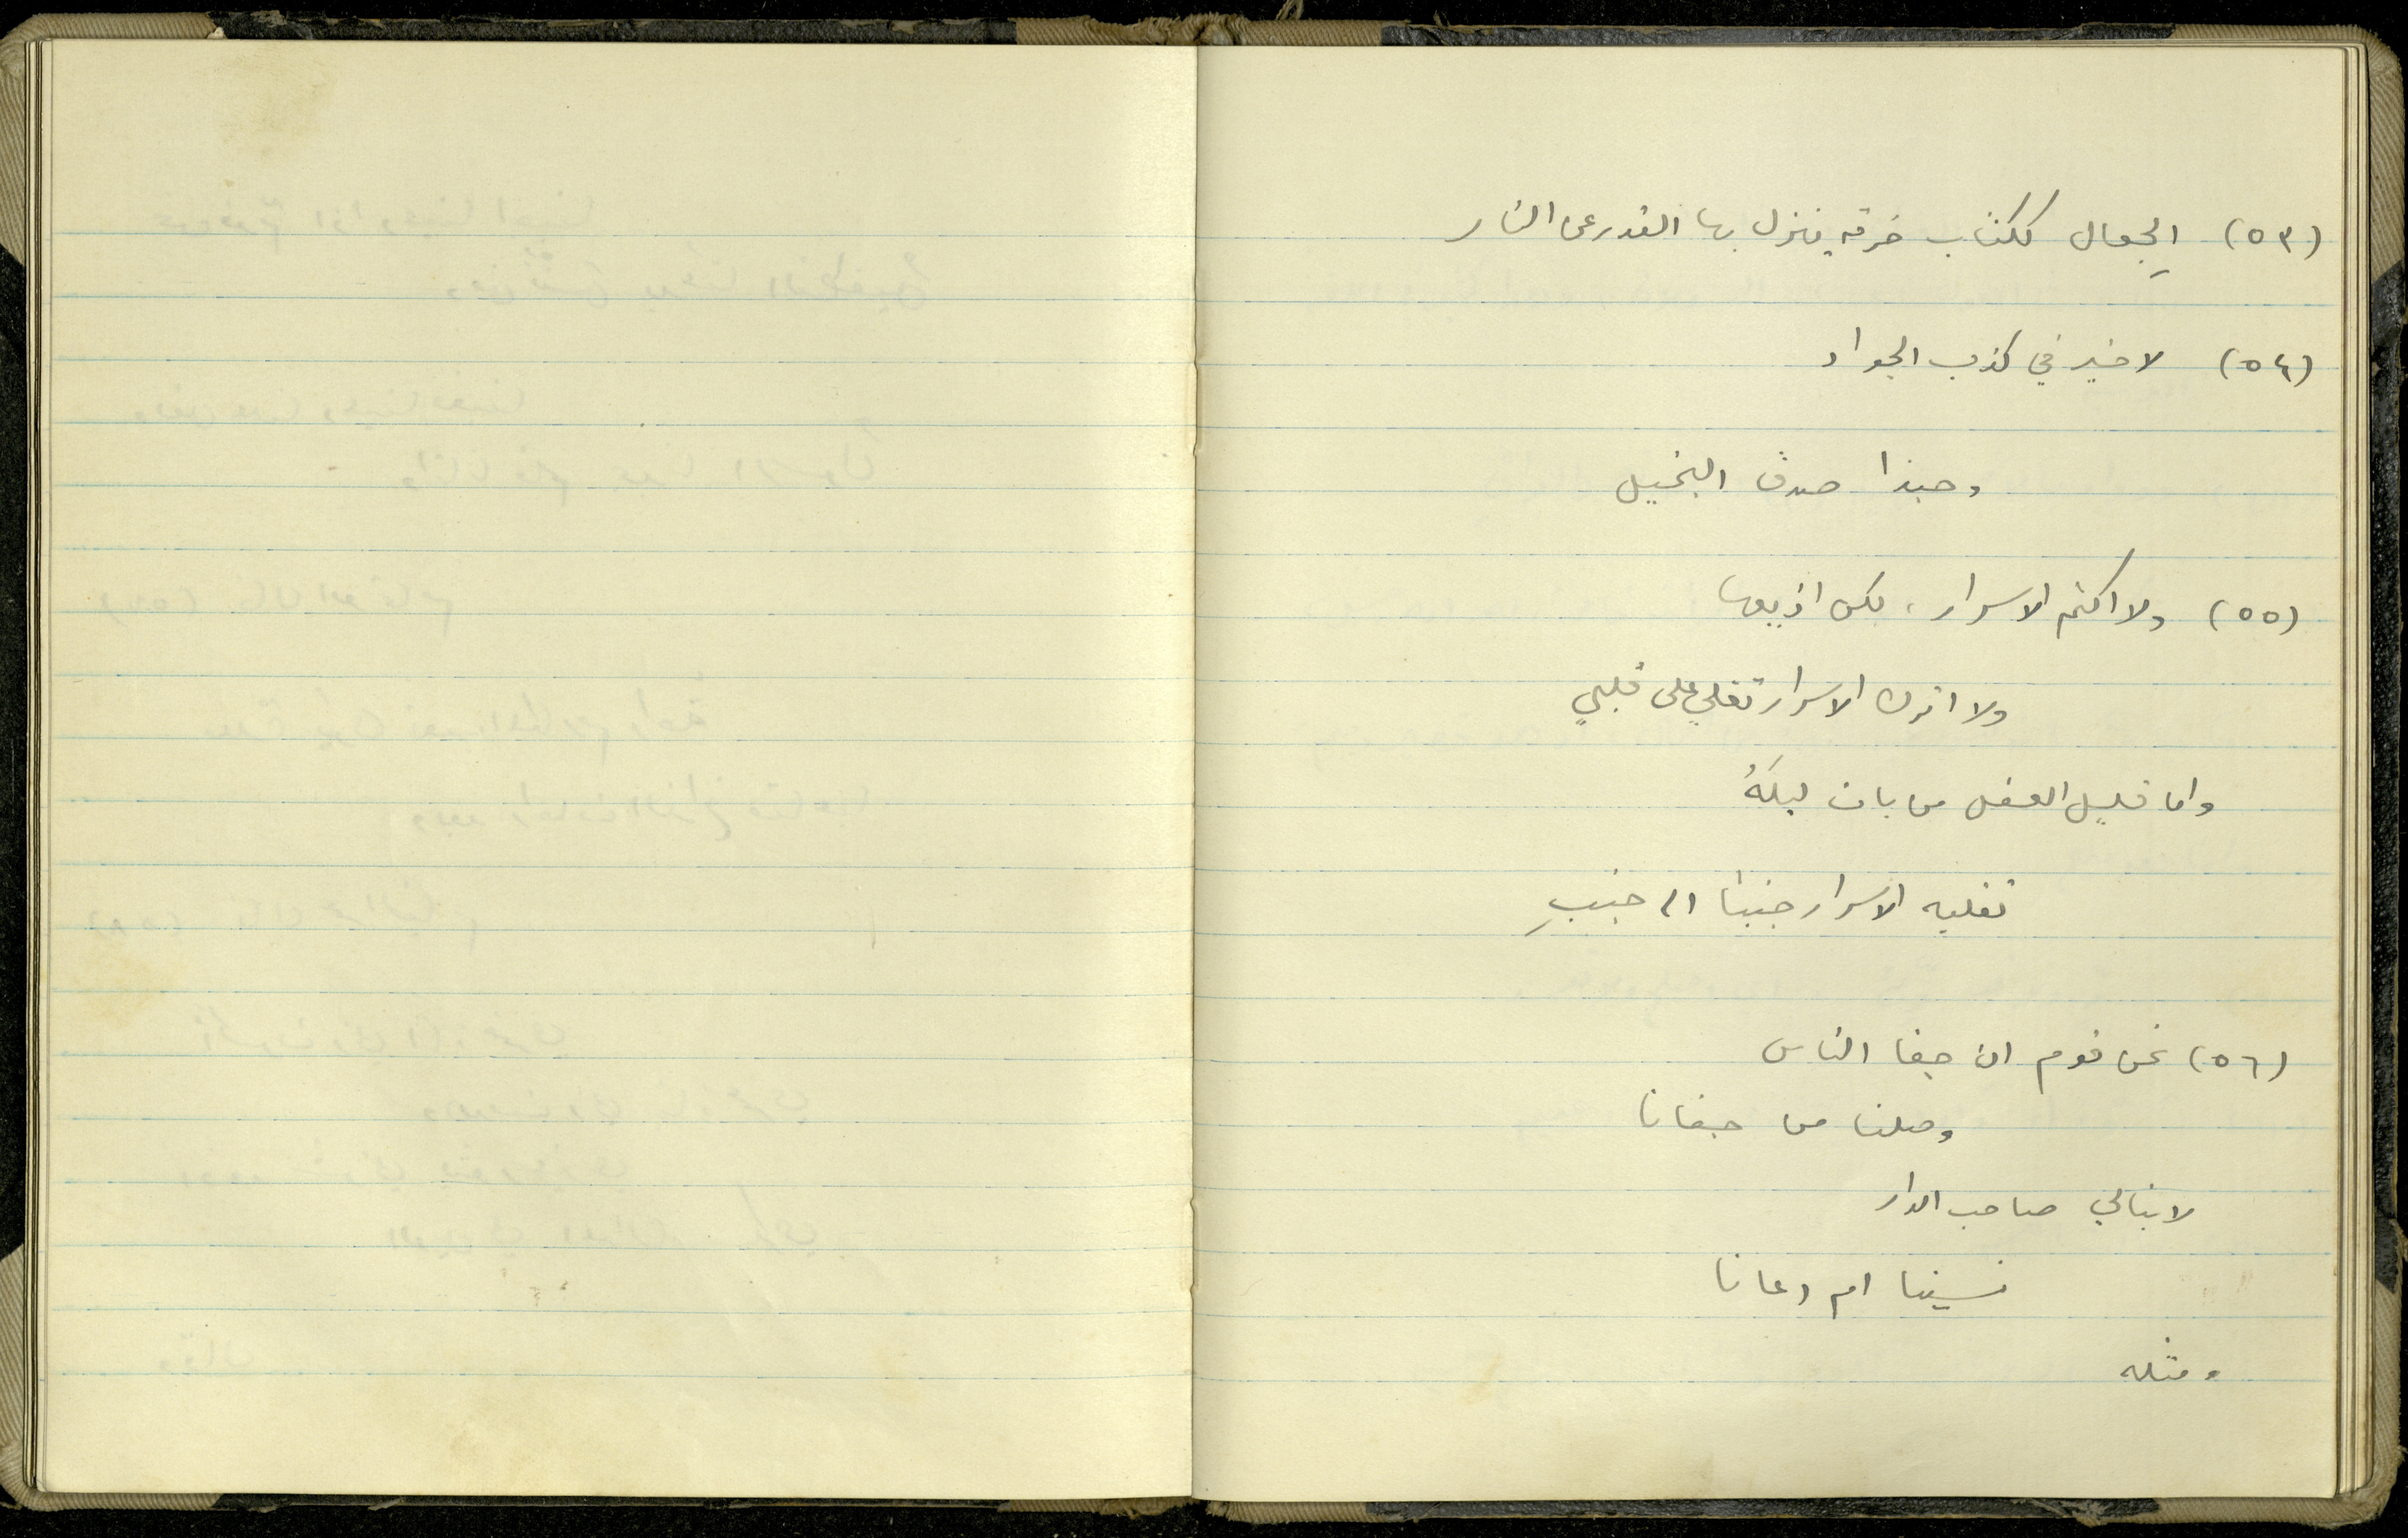 (٥٣) الجِعال ككتاب خرقه ينزل بها القدر عن النار
(٥٤) لا خير في كذب الجواد
وحبذا صدق البخيل
(٥٥) ولا اكتم الاسرار، لكن اذيعها
ولا اترك الاسرار تغلي على قلبي
واما قليل العقل من بات ليلَهُ
تقلبه الاسرار جنبا الى جنبِ
(٥٦) نحن قوم ان جفا الناس
وصلنا من جفانا
لا نبالي صاحب الدار
نسينا ام دعانا
ومثله